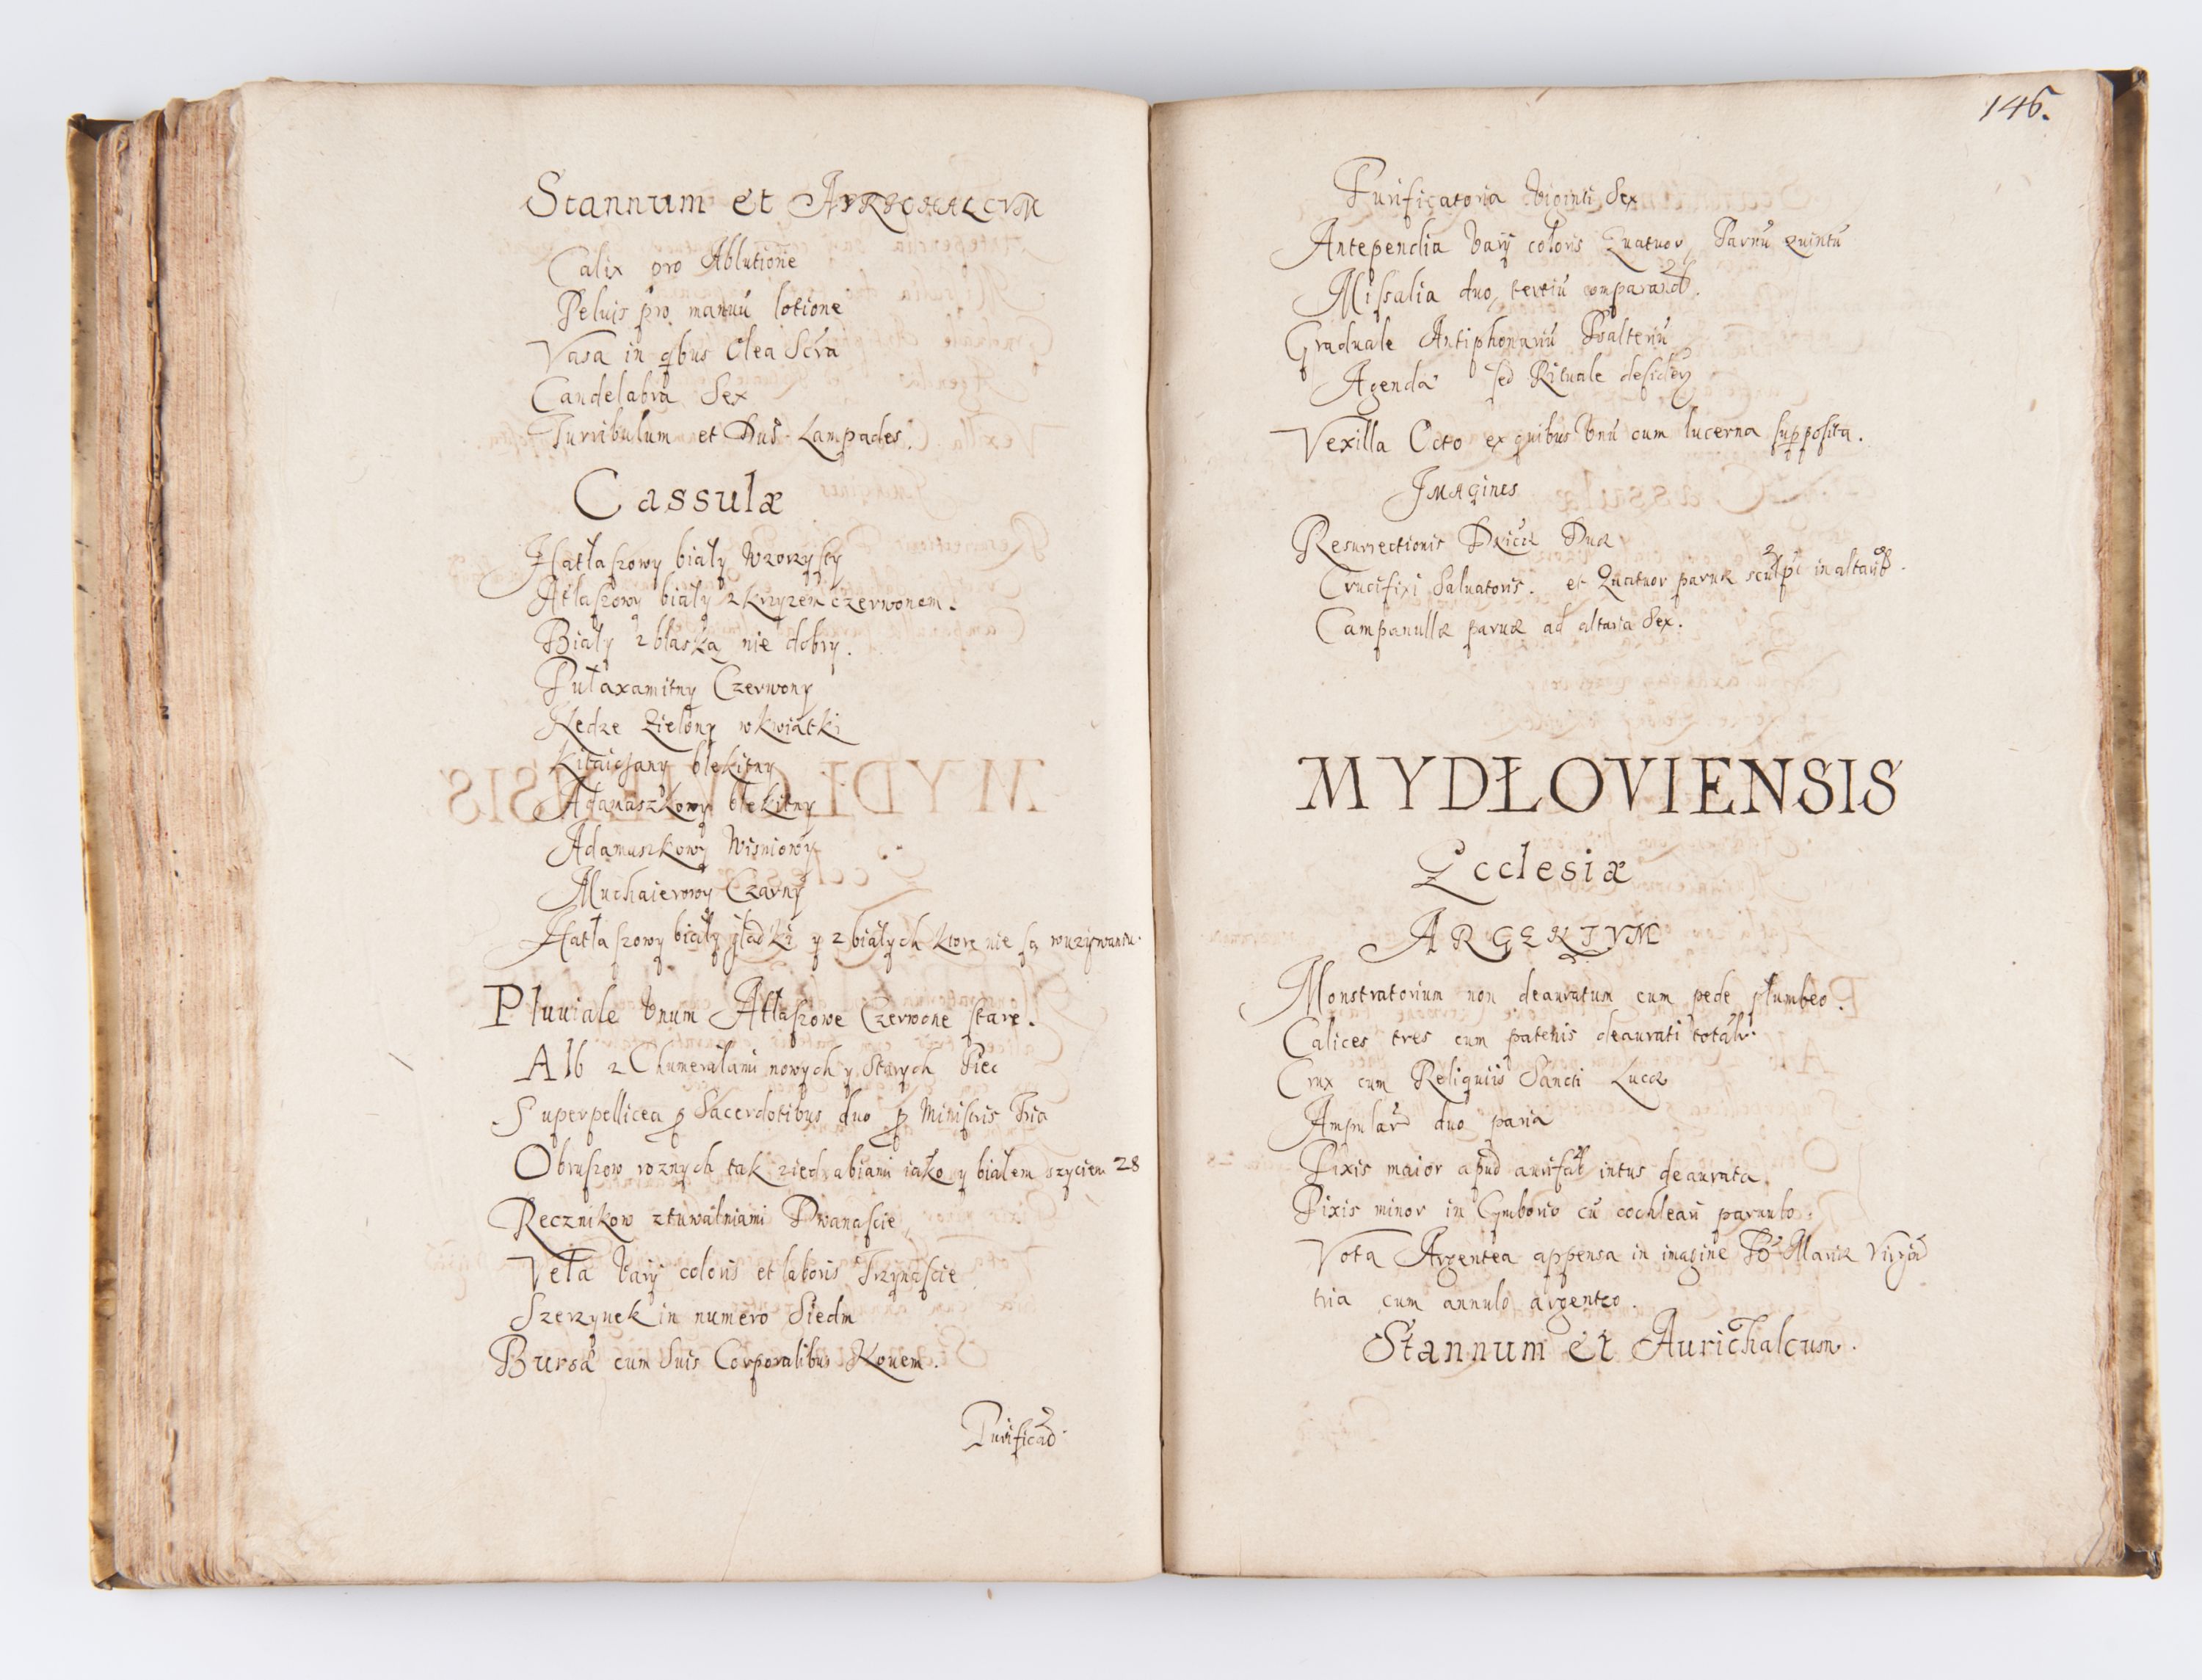 Stannum et AVRICHALCVM
Calix pro Ablutione
Peluis pro manuū lotione
Vasa in qbus Olea Scra
Candelabra Sex
Turribulum et Duæ Lampades.
Cassulæ
Hatłaszowy biały Wzorzysty
Atłaszowy biały z krzyzem czerwonem.
Biały z blaską nie dobry.
Pułaxamitny Czerwony
Kedze Zielony w kwiatki
Kitaiczany błekitny
Adamaszkowy błekitny
Adamaszkowy Wisniowy
Muchaierowy Czarny
Hatłaszowy biały gładki y 2 białych ktore nie są wuzywaniu.
Pluuiale Vnum Atłaszowe Czerwone stare.
Alb z Chumerałami nowych y Starych Piec
Superpellicea p Sacerdotibus duo p Ministris Tria
Obruszow roznych tak ziedwabiami iako y białem szyciem 28
Recznikow ztuwalniami Dwanascie
Veła Varij coloris et laboris Trzynascie
Szerzynek in numero Siedm
Bursæ cum Suis Corporalibus Nouem.
Purificat
146.
Purificatoria Viginti Sex
Antependia Varij coloris Quatuor, Paruū quintū
Missalia duo, tertiū comparand.
Graduale Antiphonariū Psalteriū
Agenda sed Rituale desider
Vexilla Octo ex quibus Vnū cum lucerna supposita.
IMAGines
Resurrectionis Dnicæ Duæ
Crucifixi Saluatoris. et Quatuor paruæ sculpt in altarib.
Campanullæ paruæ ad altaria Sex.
MYDŁOVIENSIS
Ecclesiæ
ARGENTVM
Monstratorium non deauratum cum pede plumbeo.
Calices tres cum patenis deaurati totalr.
Crux cum Reliquiis Sancti Lucæ
Ampular duo paria
Pixis maior apud aurifab intus deaurata.
Pixis minor in Cymborio cū cochleari paruulo.
Vota Argentea appensa in imagine B Mariæ Virgin
tria cum annulo argenteo.
Stannum et Aurichalcum.